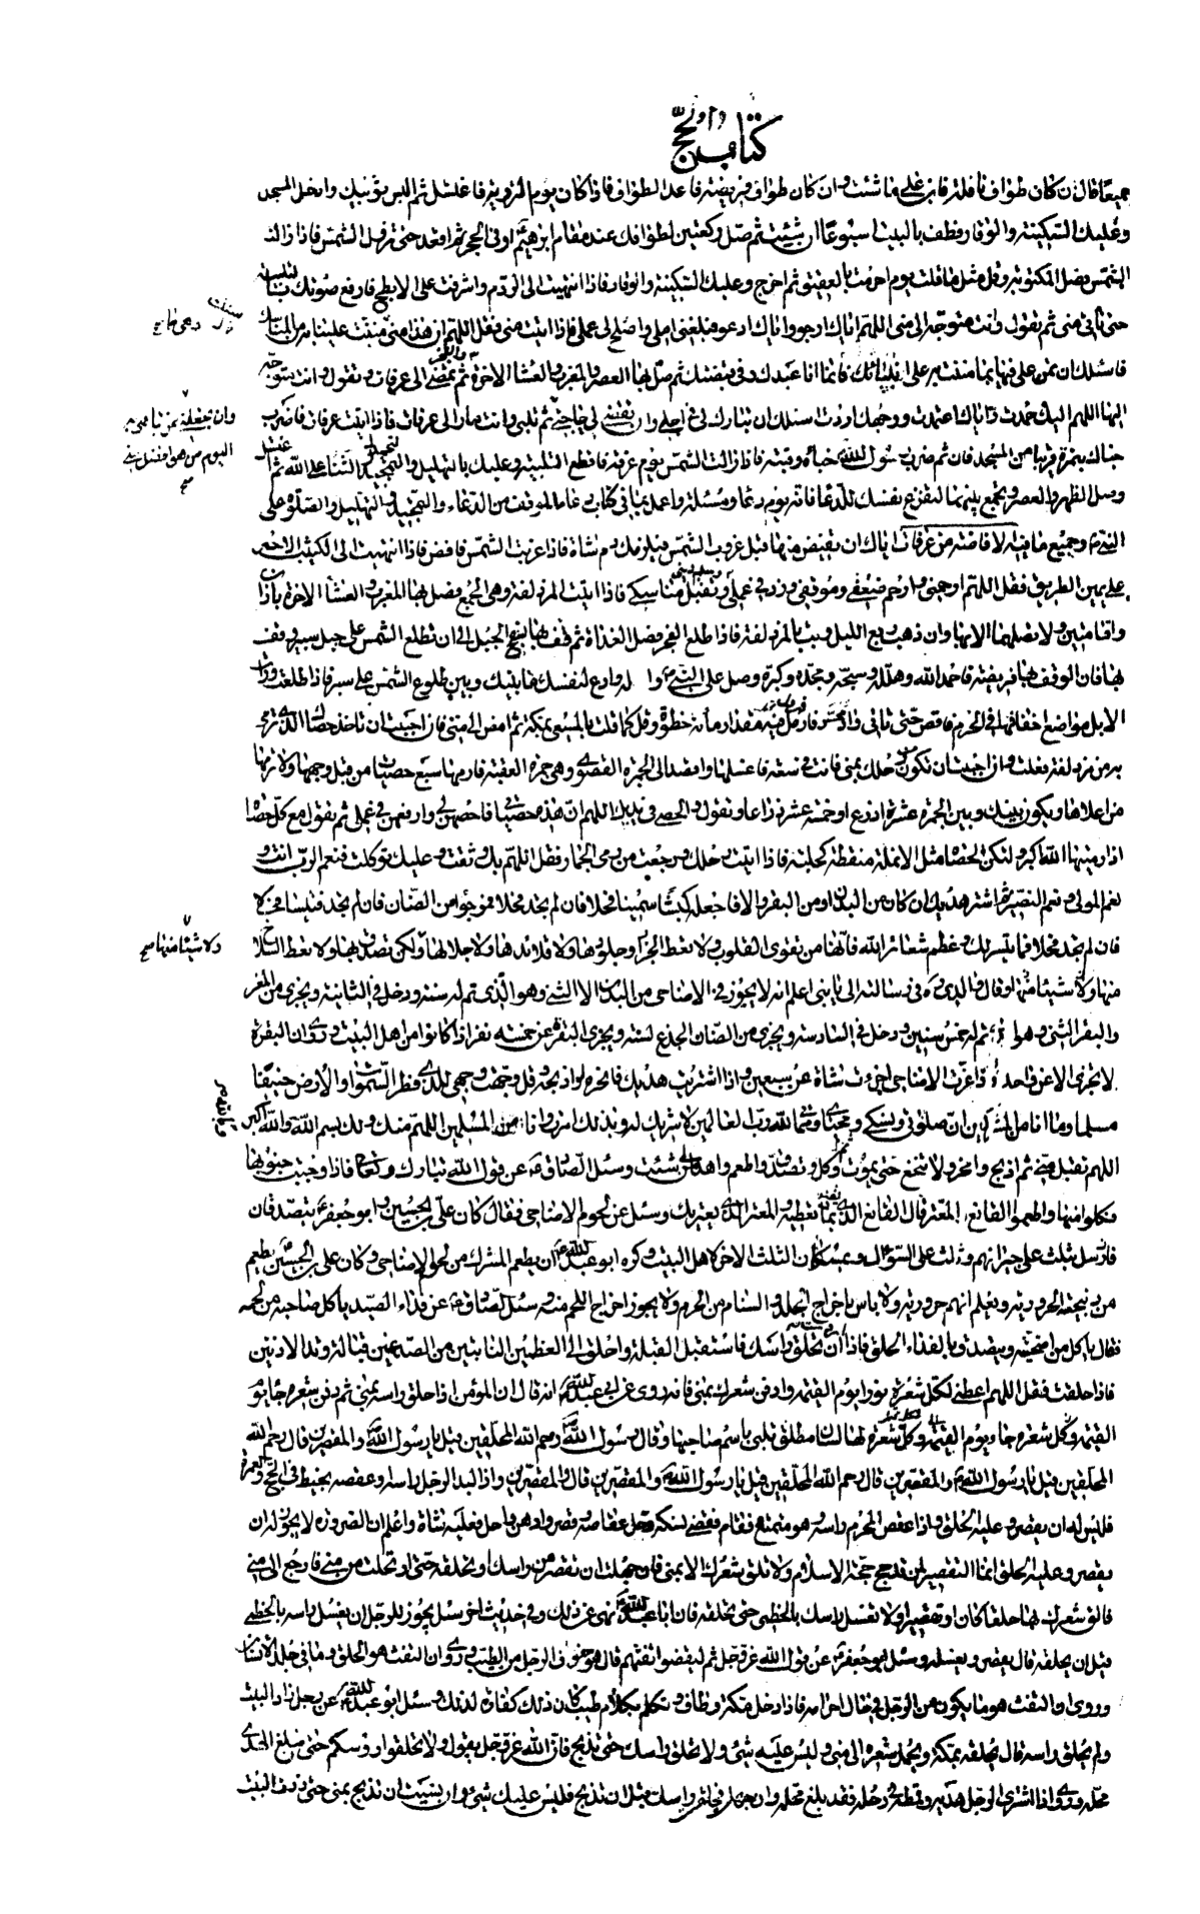 كتاب الحج
جميعا قال ان كان طواف نافلة فابن على ما شئت وان كان طواف فريضة فاعد الطواف فاذا كان يوم التروية فاغتسل ثم البس ثوبيك وادخل المسجد
وعليك السكينة والوقار وطف بالبيت اسبوعا ان شئت ثم صل ركعتين لطوافك عند مقام ابرهيم او في الحجر ثم اقعد حتى تزول الشمس فاذا زالت
الشمس فصل المكتوبة وقل مثل ما قلت يوم احرمت بالعقيق ثم اخرج وعليك السكينة والوقار فاذا انتهيت الى الردم واشرفت على الابطح فارفع صوتك بالتلبية
حتى تاتي منى ثم تقول وانت متوجه الى منى اللهم اياك ارجو واياك ادعو فبلغني املي واصلح لي عملي فاذا اتيت منى فقل اللهم ان هذا منى مننت علينا به من المناسك
فاسئلك ان تمن علي فيها بما مننت به على فانما انا عبدك وفي قبضتك ثم صل بها العصر والمغرب والعشاء الاخرة ثم تمضي الى عرفات وتقول وانت متوجه
اليها اللهم اليك صمدت واياك اعتمدت ووجهك اردت اسئلك ان تبارك لي في اجلي وان تقضي لي حاجتي ثم تلبي وانت مار الى عرفات فاذا اتيت عرفات فاضرب
خباك بنمرة قريبا من المسجد فان ثم ضرب رسول الله خباه وقبته فاذا زالت الشمس يوم عرفة فاقطع التلبية وعليك بالتهليل والتحميد والثناء على الله ثم اغتسل
وصل الظهر والعصر وتجمع بينهما لتفرغ نفسك للدعا فانه يوم دعا ومسئلة واعمل بما في كتاب دعاء الموقف من الدعاء والتمجيد والتهليل والصلوة على
النبي وجميع ما فيه الافاضة من عرفات اياك ان تفيض منها قبل غروب الشمس فيلزمك دم شاة فاذا غربت الشمس فافض فاذا انتهيت الى الكثيب الاحمر
على يمين الطريق فقل اللهم ارحم ضعفي وموقفي وزد في عملي وتقبل مناسكي فاذا اتيت المزدلفة وهي الجمع فصل بها المغرب والعشاء الاخرة باذان
واقامتين ولا تصلهما الا بها وان ذهب ربع الليل وبت بالمزدلفة فاذا طلع الفجر فصل الغداة ثم قف بها بسفح الجبل الى ان تطلع الشمس على جبل ثبير وقف
بها فان الوقوف بها فريضة فاحمد الله وهلله وسبحه ومجده وكبره وصل على النبي وادع لنفسك ما بينك وبين طلوع الشمس على ثبير فاذا طلعت ورات
الابل مواضع اخفافها في الحرم فامض حتى تاتي وادي محسر فارمل فيه مقدار مائة خطوة وقل كما قلت بالمسعى بمكة ثم امض الى منى فان احببت ان تاخذ حصاك الذي ترمي
به من مزدلفة فعلت وان احببت ان تكون من رحلك بمنى فانت في سعة فاغسلها واقصد الى الجمرة القصوى وهي جمرة العقبة فارمها سبع حصيات من قبل وجهها ولا ترمها
من اعلاها ويكون بينك وبين الجمرة عشرة اذرع او خمسة عشر ذراعا وتقول والحصى في يديك اللهم ان هذه حصياتي فاحصهن لي وارفعهن في عملي ثم تقول مع كل حصاة
اذا رميتها الله اكبر ولتكن الحصاة مثل الانملة منقطة كحلية فاذا اتيت رحلك ورجعت من رمي الجمار فقل اللهم بك وثقت وعليك توكلت فنعم الرب انت و
نعم المولى ونعم النصير ثم اشتر هديك ان كان من البدن او من البقر والا فاجعله كبشا سمينا فحلا فان لم تجد فحلا فموجوأ من الضان فان لم تجد فتيسا فحلا
فان لم تجد فحلا فما تيسر لك وعظم شعائر الله فانها من تقوى القلوب ولا تعط الجزار جلودها ولا قلائدها ولا جلالها ولكن تصدق بها ولا تعط السلاخ
منها ولا شيئا منها وقال والدي ره في رسالته الي يا بني اعلم انه لا يجوز في الاضاحي من البدن الا الثني وهو الذي تم له سنة ودخل في الثانية ويجزي من المعز
والبقر الثني وهو الذي تم له خمس سنين ودخل في السادسة ويجزي من الضان الجذع لسنة ويجزي البقرة عن خمسة نفر اذا كانوا من اهل البيت وروي ان البقرة
لا تجزي الا عن واحد واذا عزت الاضاحي اجزءت شاة عن سبعين واذا اشتريت هديك فانحره او اذبحه وقل وجهت وجهي للذي فطر السموات والارض حنيفا
مسلما وما انا من المشركين ان صلوتي ونسكي ومحياي ومماتي لله رب العالمين لا شريك له وبذلك امرت وانا من المسلمين اللهم منك ولك بسم الله والله اكبر
اللهم تقبل مني ثم اذبح وانحر ولا تنخع حتى يموت وكل وتصدق واطعم واهد الى من شئت وسئل الصادق ع عن قول الله تبارك وتعالى فاذا وجبت جنوبها
فكلوا منها واطعموا القانع والمعتر قال القانع الذي يقنع بما تعطيه والمعتر الذي يعتريك وسئل عن لحوم الاضاحي فقال كان علي بن الحسين وابو جعفر يتصدقان
فارسل بثلث على جيرانهم وثلث على السؤال ويمسكان الثلث الاخر لاهل البيت وكره ابو عبد الله ان يطعم المشرك من لحوم الاضاحي وكان علي بن الحسين يطعم
من ذبيحته الحرورية ويعلم انهم حرورية ولا باس باخراج الجلد والسنام من الحرم ولا يجوز اخراج اللحم منه وسئل الصادق ع عن فداء الصيد ياكل صاحبه من لحمه
فقال ياكل من اضحيته ويتصدق بالفداء الحلق فاذا اردت ان تحلق راسك فاستقبل القبلة واحلق الى العظمين النابتين من الصدغين قبالة وتد الاذنين
فاذا حلقت فقل اللهم اعطني لكل شعرة نورا يوم القيمة وادفن شعرك بمنى فانه روي عن ابي عبد الله انه قال ان المؤمن اذا حلق راسه بمنى ثم دفن شعره جاء يوم
القيمة وكل شعرة لها لسان مطلق تلبي باسم صاحبها وقال رسول الله رحم الله المحلقين قيل يا رسول الله والمقصرين قال رحم الله
المحلقين قيل يا رسول الله والمقصرين قال رحم الله المحلقين قيل يا رسول الله والمقصرين قال والمقصرين واذا لبد الرجل راسه وعقصه بخيط في الحج والعمرة
فليس له ان يقصر وعليه الحلق واذا عقص المحرم راسه وهو متمتع فقام فقضى نسكه وحل عقاصه وقصر وادهن واحل فعليه شاة واعلم ان الصرورة لا يجوز له ان
يقصر وعليه الحلق انما التقصير لمن قد حج حجة الاسلام ولا تلق شعرك الا بمنى فان جهلت ان تقصر من راسك او تحلقه حتى ارتحلت من منى فارجع الى منى
فالق شعرك بها حلقا كان او تقصيرا ولا تغسل راسك بالخطمي حتى تحلقه فان ابا عبد الله نهى عن ذلك وفي حديث اخر سئل يجوز للرجل ان يغسل راسه بالخطمي
قبل ان يحلقه قال يقصر ويغسله وسئل ابو جعفر عن قول الله عز وجل ثم ليقضوا تفثهم قال هو حفوف الرجل من الطيب وروي ان التفث هو الحلق وما في جلد الانسان
وروي ان التفث هو ما يكون من الرجل في حال احرامه فاذا دخل مكة وطاف وتكلم بكلام طيب كان ذلك كفارة لذلك وسئل ابو عبد الله عن رجل زار البيت
ولم يحلق راسه قال يحلقه بمكة ويحمل شعره الى منى وليس عليه شئ ولا تحلق راسك حتى تذبح فان الله عز وجل يقول ولا تحلقوا رؤسكم حتى يبلغ الهدي
محله وروي اذا اشترى الرجل هديه وقمطه في رحله فقد بلغ محله وان جهلت فحلقت راسك قبل ان تذبح فليس عليك شئ وان نسيت ان تذبح بمنى حتى زرت البيت
وان تجعلني ممن تباهي به
اليوم من هو افضل مني
صح
ولا شيئا منها صح